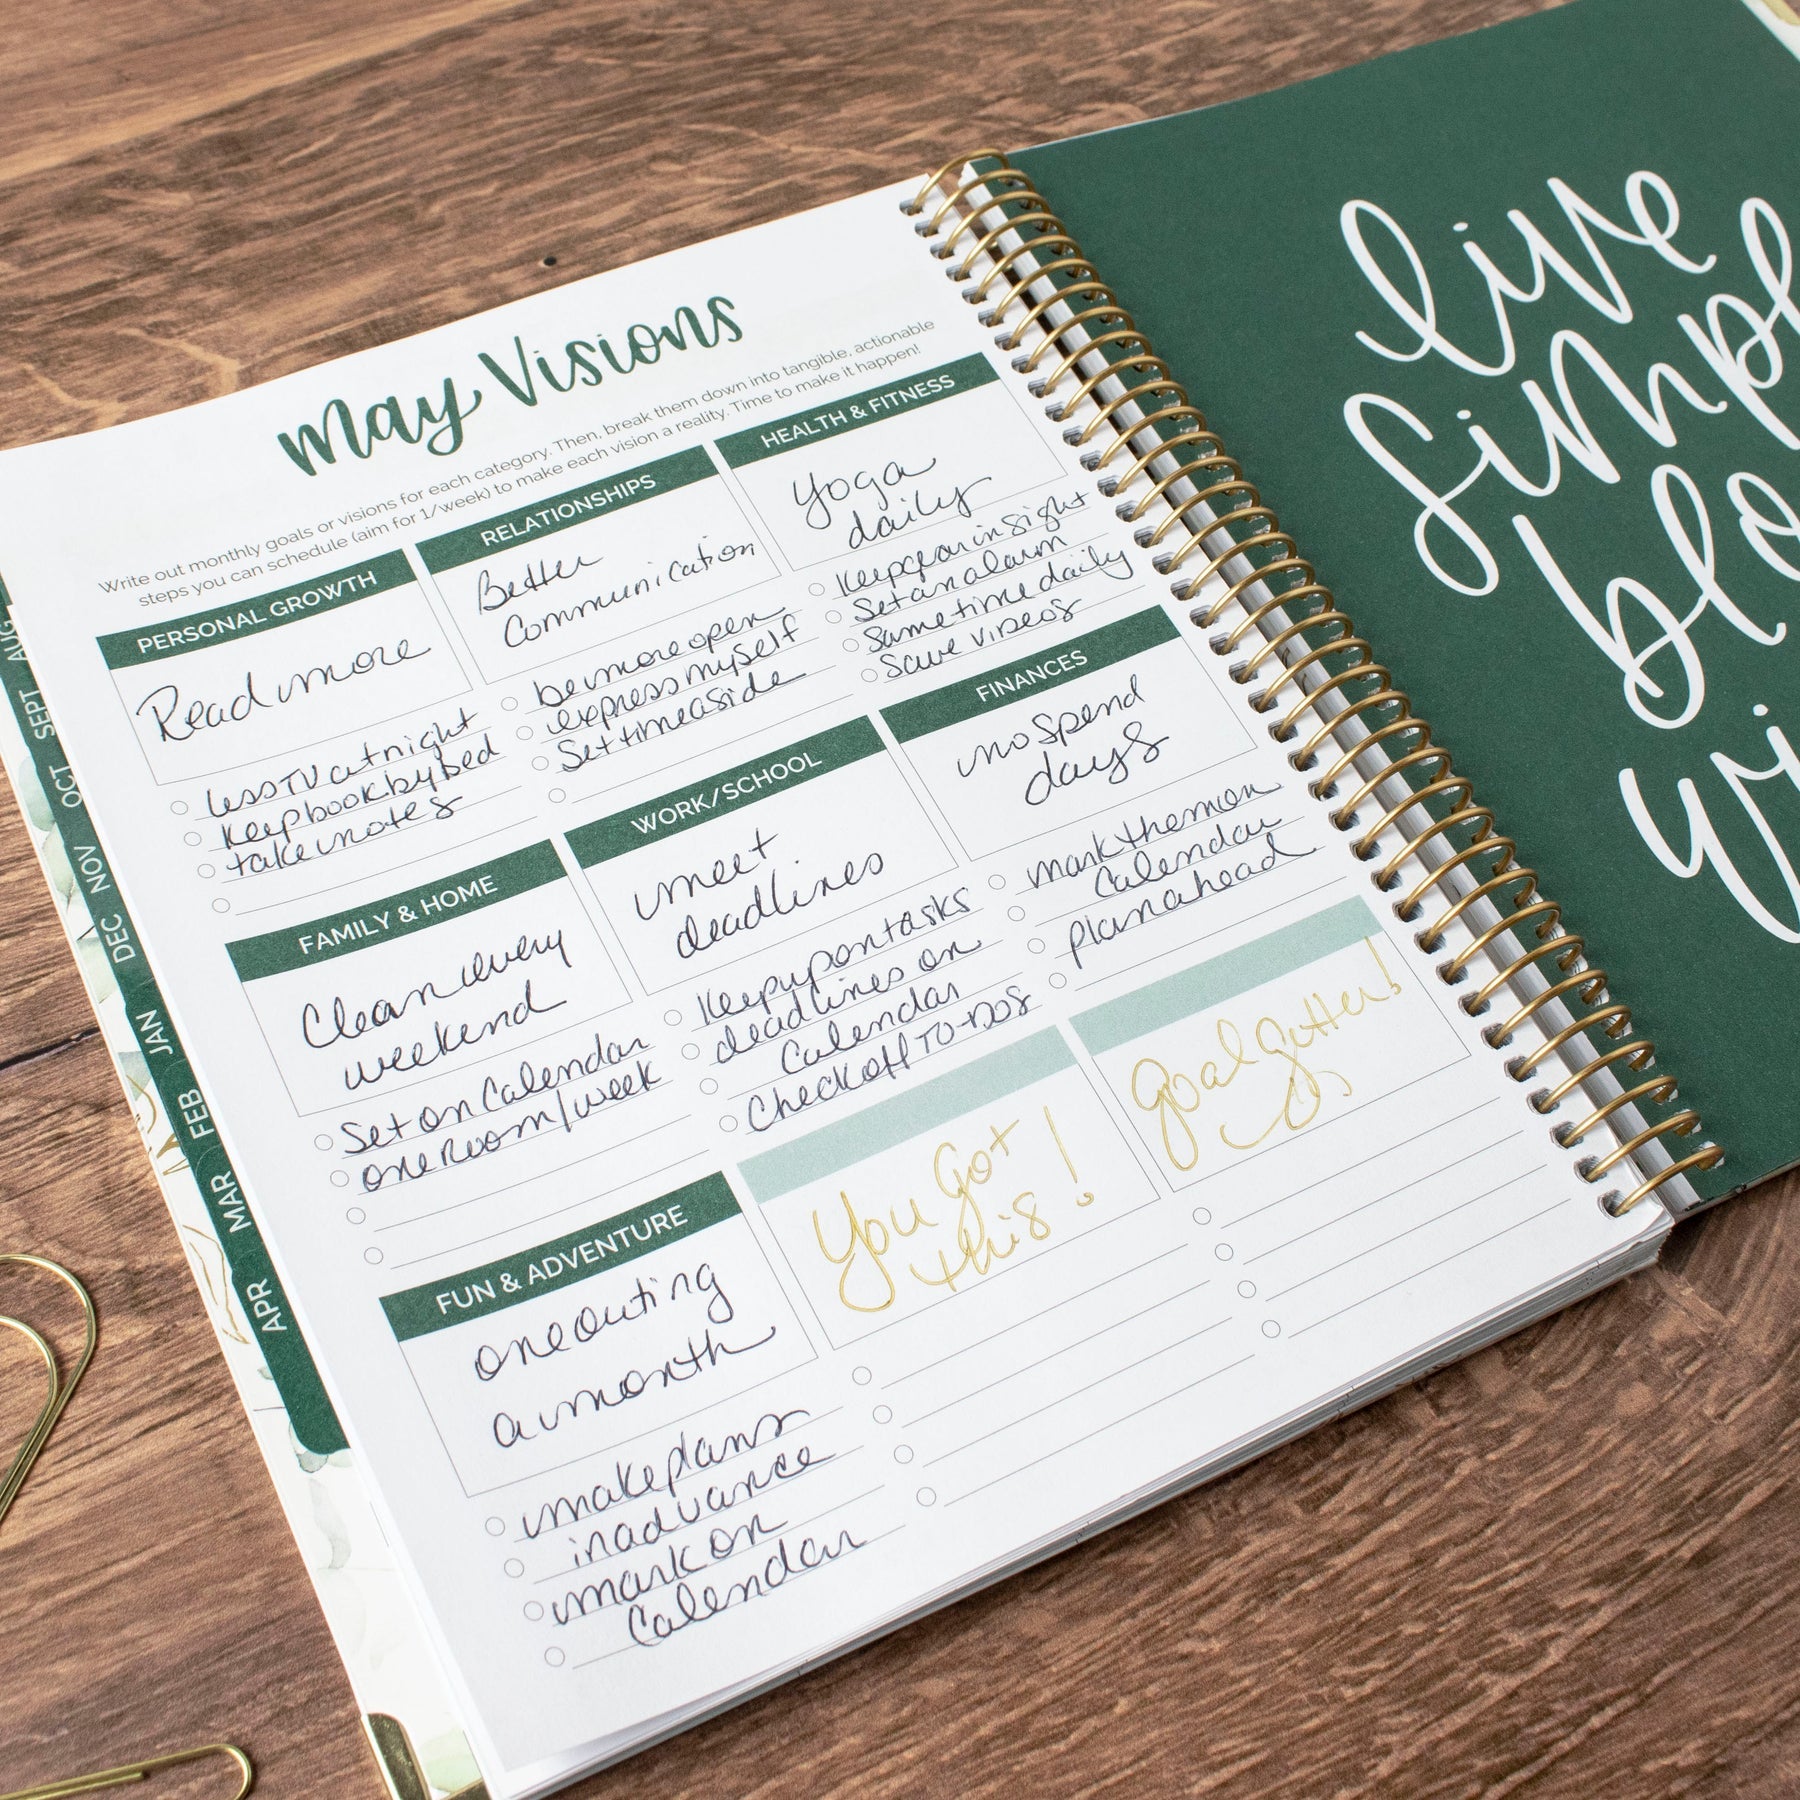 May Visions
Write out monthly goals or visions for each category. Then, break them down into tangible, actionable
steps you can schedule (aim for 1/week) to make each vision a reality. Time to make it happen!
PERSONAL GROWTH
Read more
less TV at night
keep book by bed
take notes
RELATIONSHIPS
Better
Communication
be more open
express myself
Set time aside
HEALTH & FITNESS
Yoga
daily
Keep gear in sight
Set an alarm
Same time daily
Save videos
FAMILY & HOME
Clean every
weekend
Set on Calendar
one room/week
WORK/SCHOOL
meet
deadlines
Keep up on tasks
deadlines on
Calendar
Check off TO-DOS
FINANCES
no spend
days
mark them on
Calendar
plan ahead
FUN & ADVENTURE
one outing
a month
make plans
in advance
mark on
Calendar
You Got
this!
Goal getter!
AUG
SEPT
OCT
NOV
DEC
JAN
FEB
MAR
APR
live